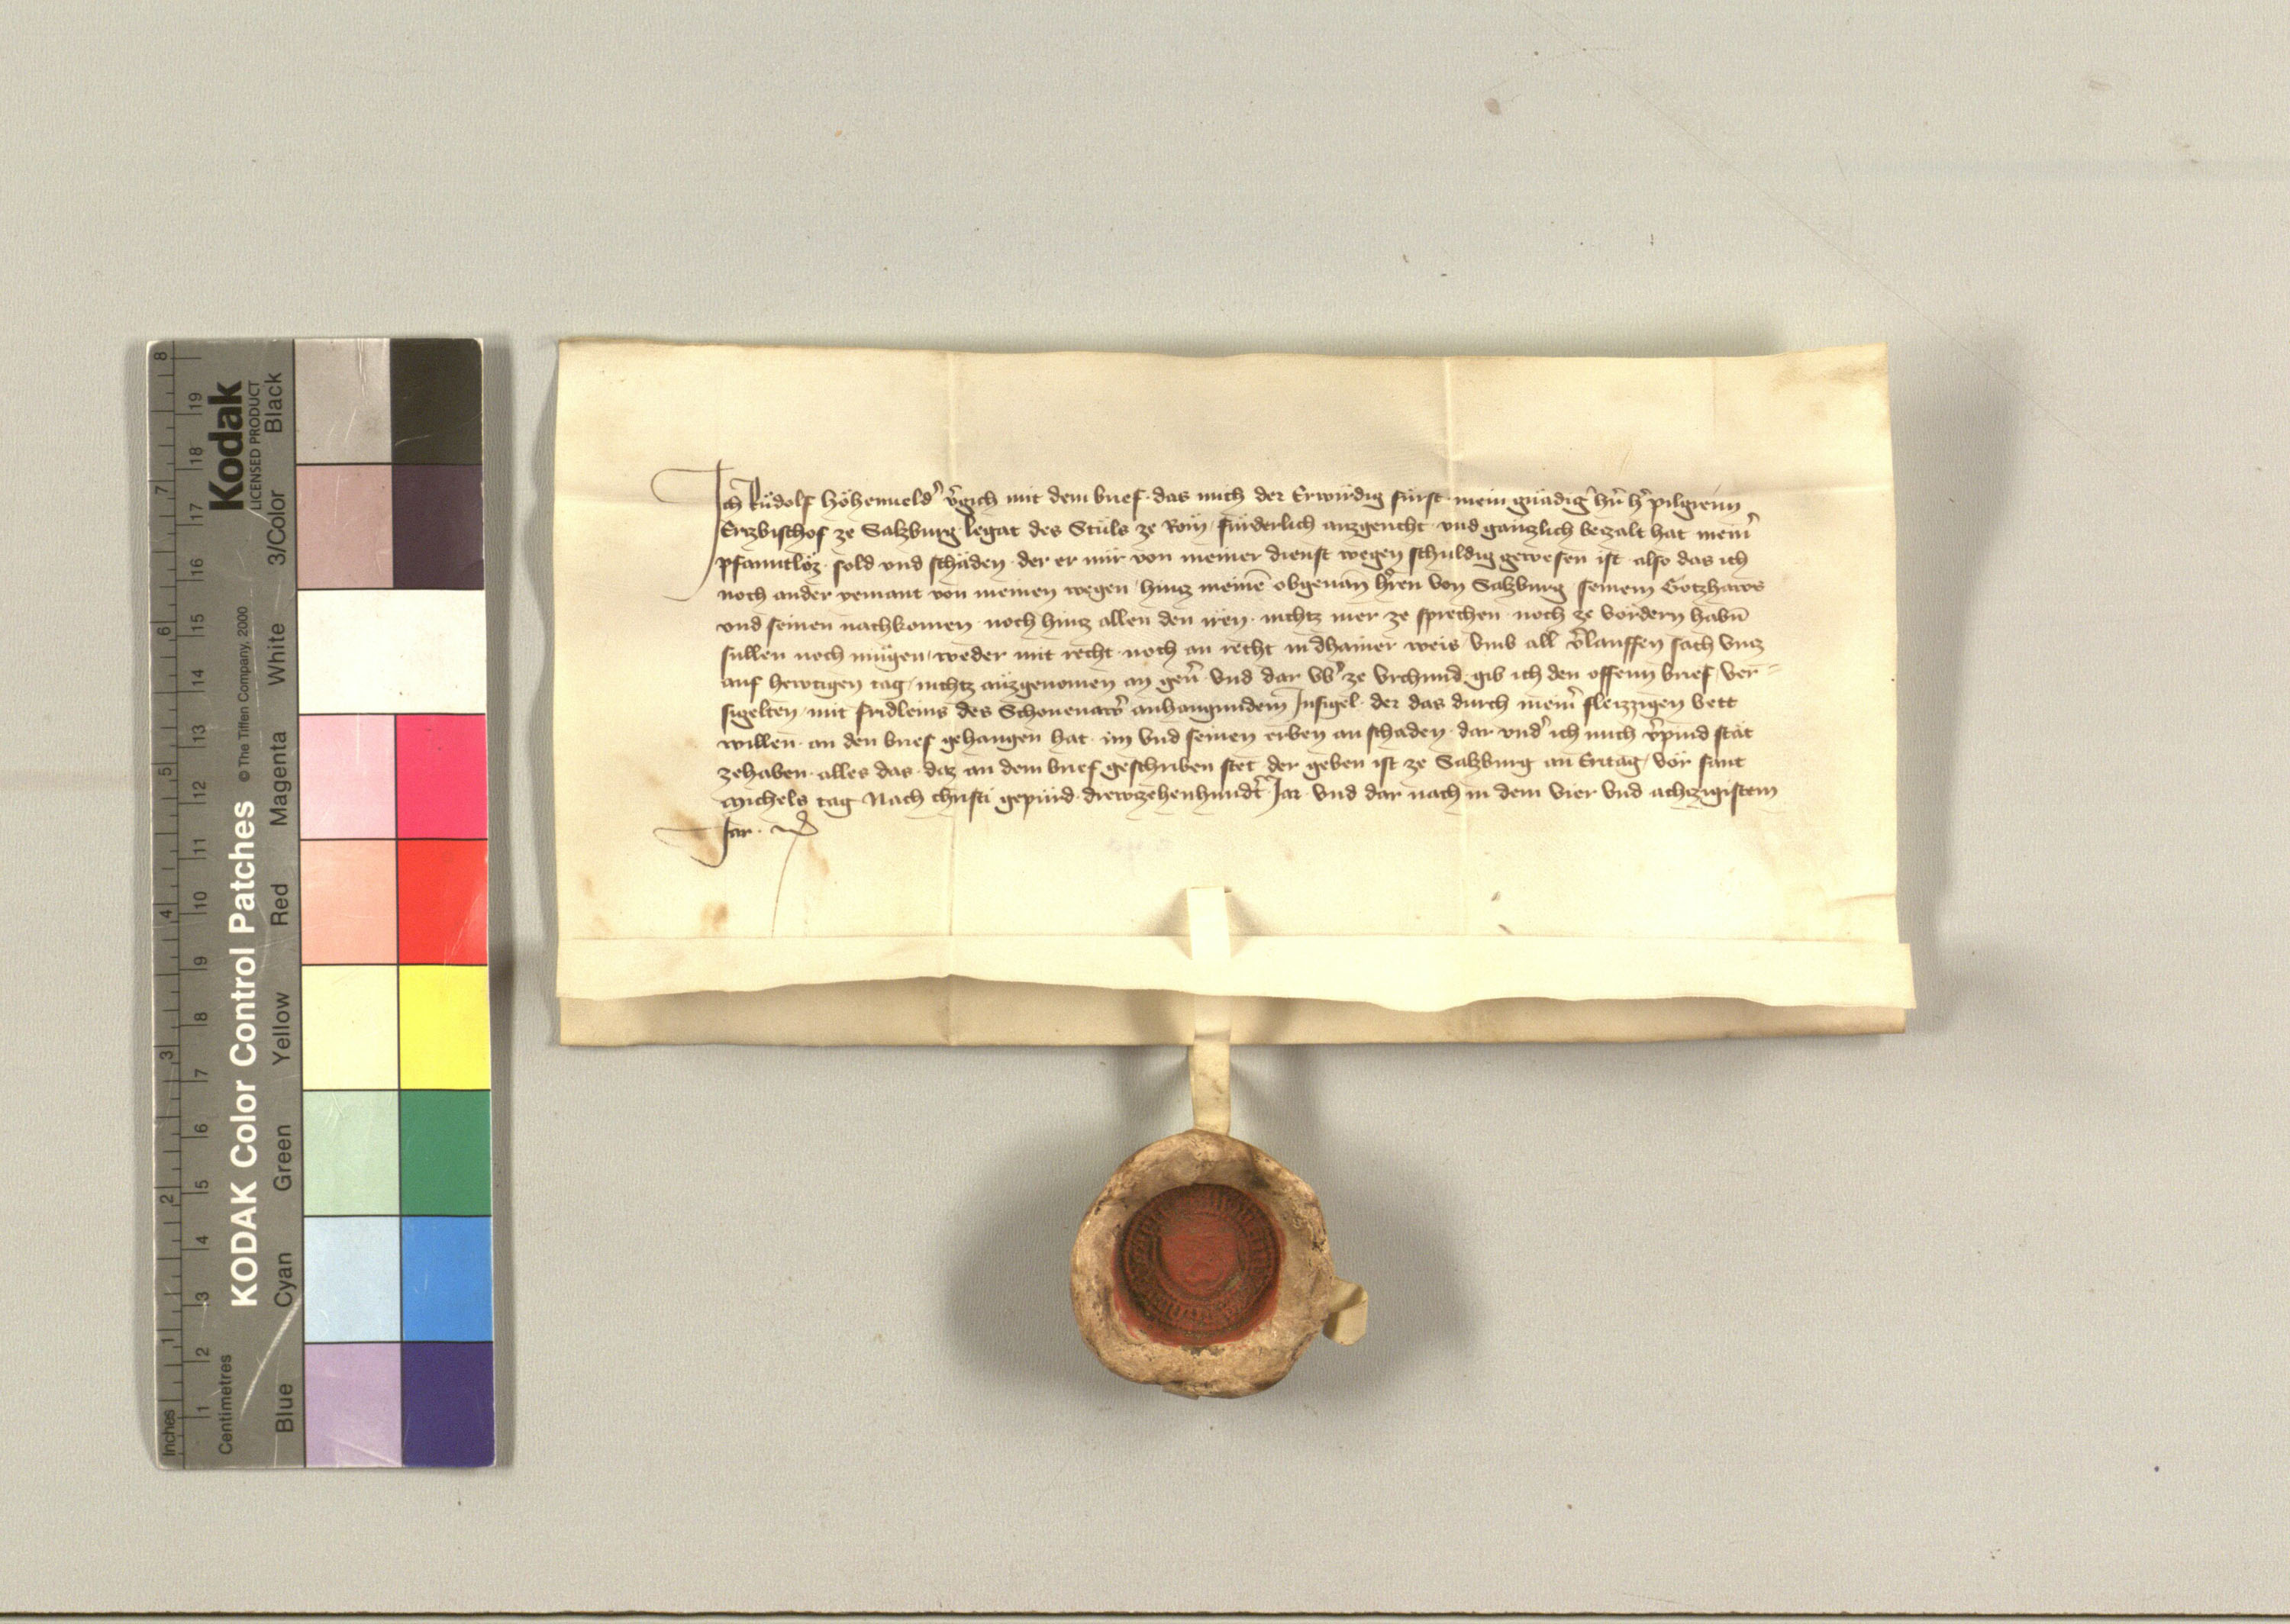 Ich Rudolf Hohenueld' v'gich mit dem brief · das mich der Erwirdig fürst · mein gnädig' h'r h' pilgreim
Erzbischof ze Salzburg legat des Stüls ze Rom / fürderlich auzgericht vnd gäntzlich bezalt hat meiner
pfanntlöz · sold vnd schäden · der er mir von meiner dienst wegen schuldig gewesen ist · also das ich
noch ander yemant von meinen wegen / hintz meinē obgenan h'ren von Salzburg · seinem Gotzhaws
vnd seinen nachkomen · noch hintz allen den iren · nichtz mer ze sprechen · noch ze vordern habn̄
sullen noch mügen / weder mit recht noch an recht in dhainer weis / vmb all v'lauffen sach vntz
auf hewtigen tag / nichtz auzgenomen an geu'd · vnd dar vb' ze vrchund · gib ich den offenn brief / ver=
sigelten / mit Fridleins des Schonenaw' anhangundem Insigel · der das durch mein' fleizzigen bett
willen · an den brief gehangen hat · im vnd seinen erben an schaden · dar vnd' ich mich v'pind stät
zehaben · alles das · daz an dem brief geschriben stet · der geben ist ze Salzburg an Eritag / vor sant
Michels tag Nach christi gepurd · drewzehenhundt' Jar · vnd dar nach in dem vier vnd achtzigistem
Jar ·
Inches
Centimetres
1 2 3 4 5 6 7 8
1 2 3 4 5 6 7 8 9 10 11 12 13 14 15 16 17 18 19
KODAK Color Control Patches
© The Tiffen Company, 2000
Kodak
LICENSED PRODUCT
Blue Cyan Green Yellow Red Magenta White 3/Color Black